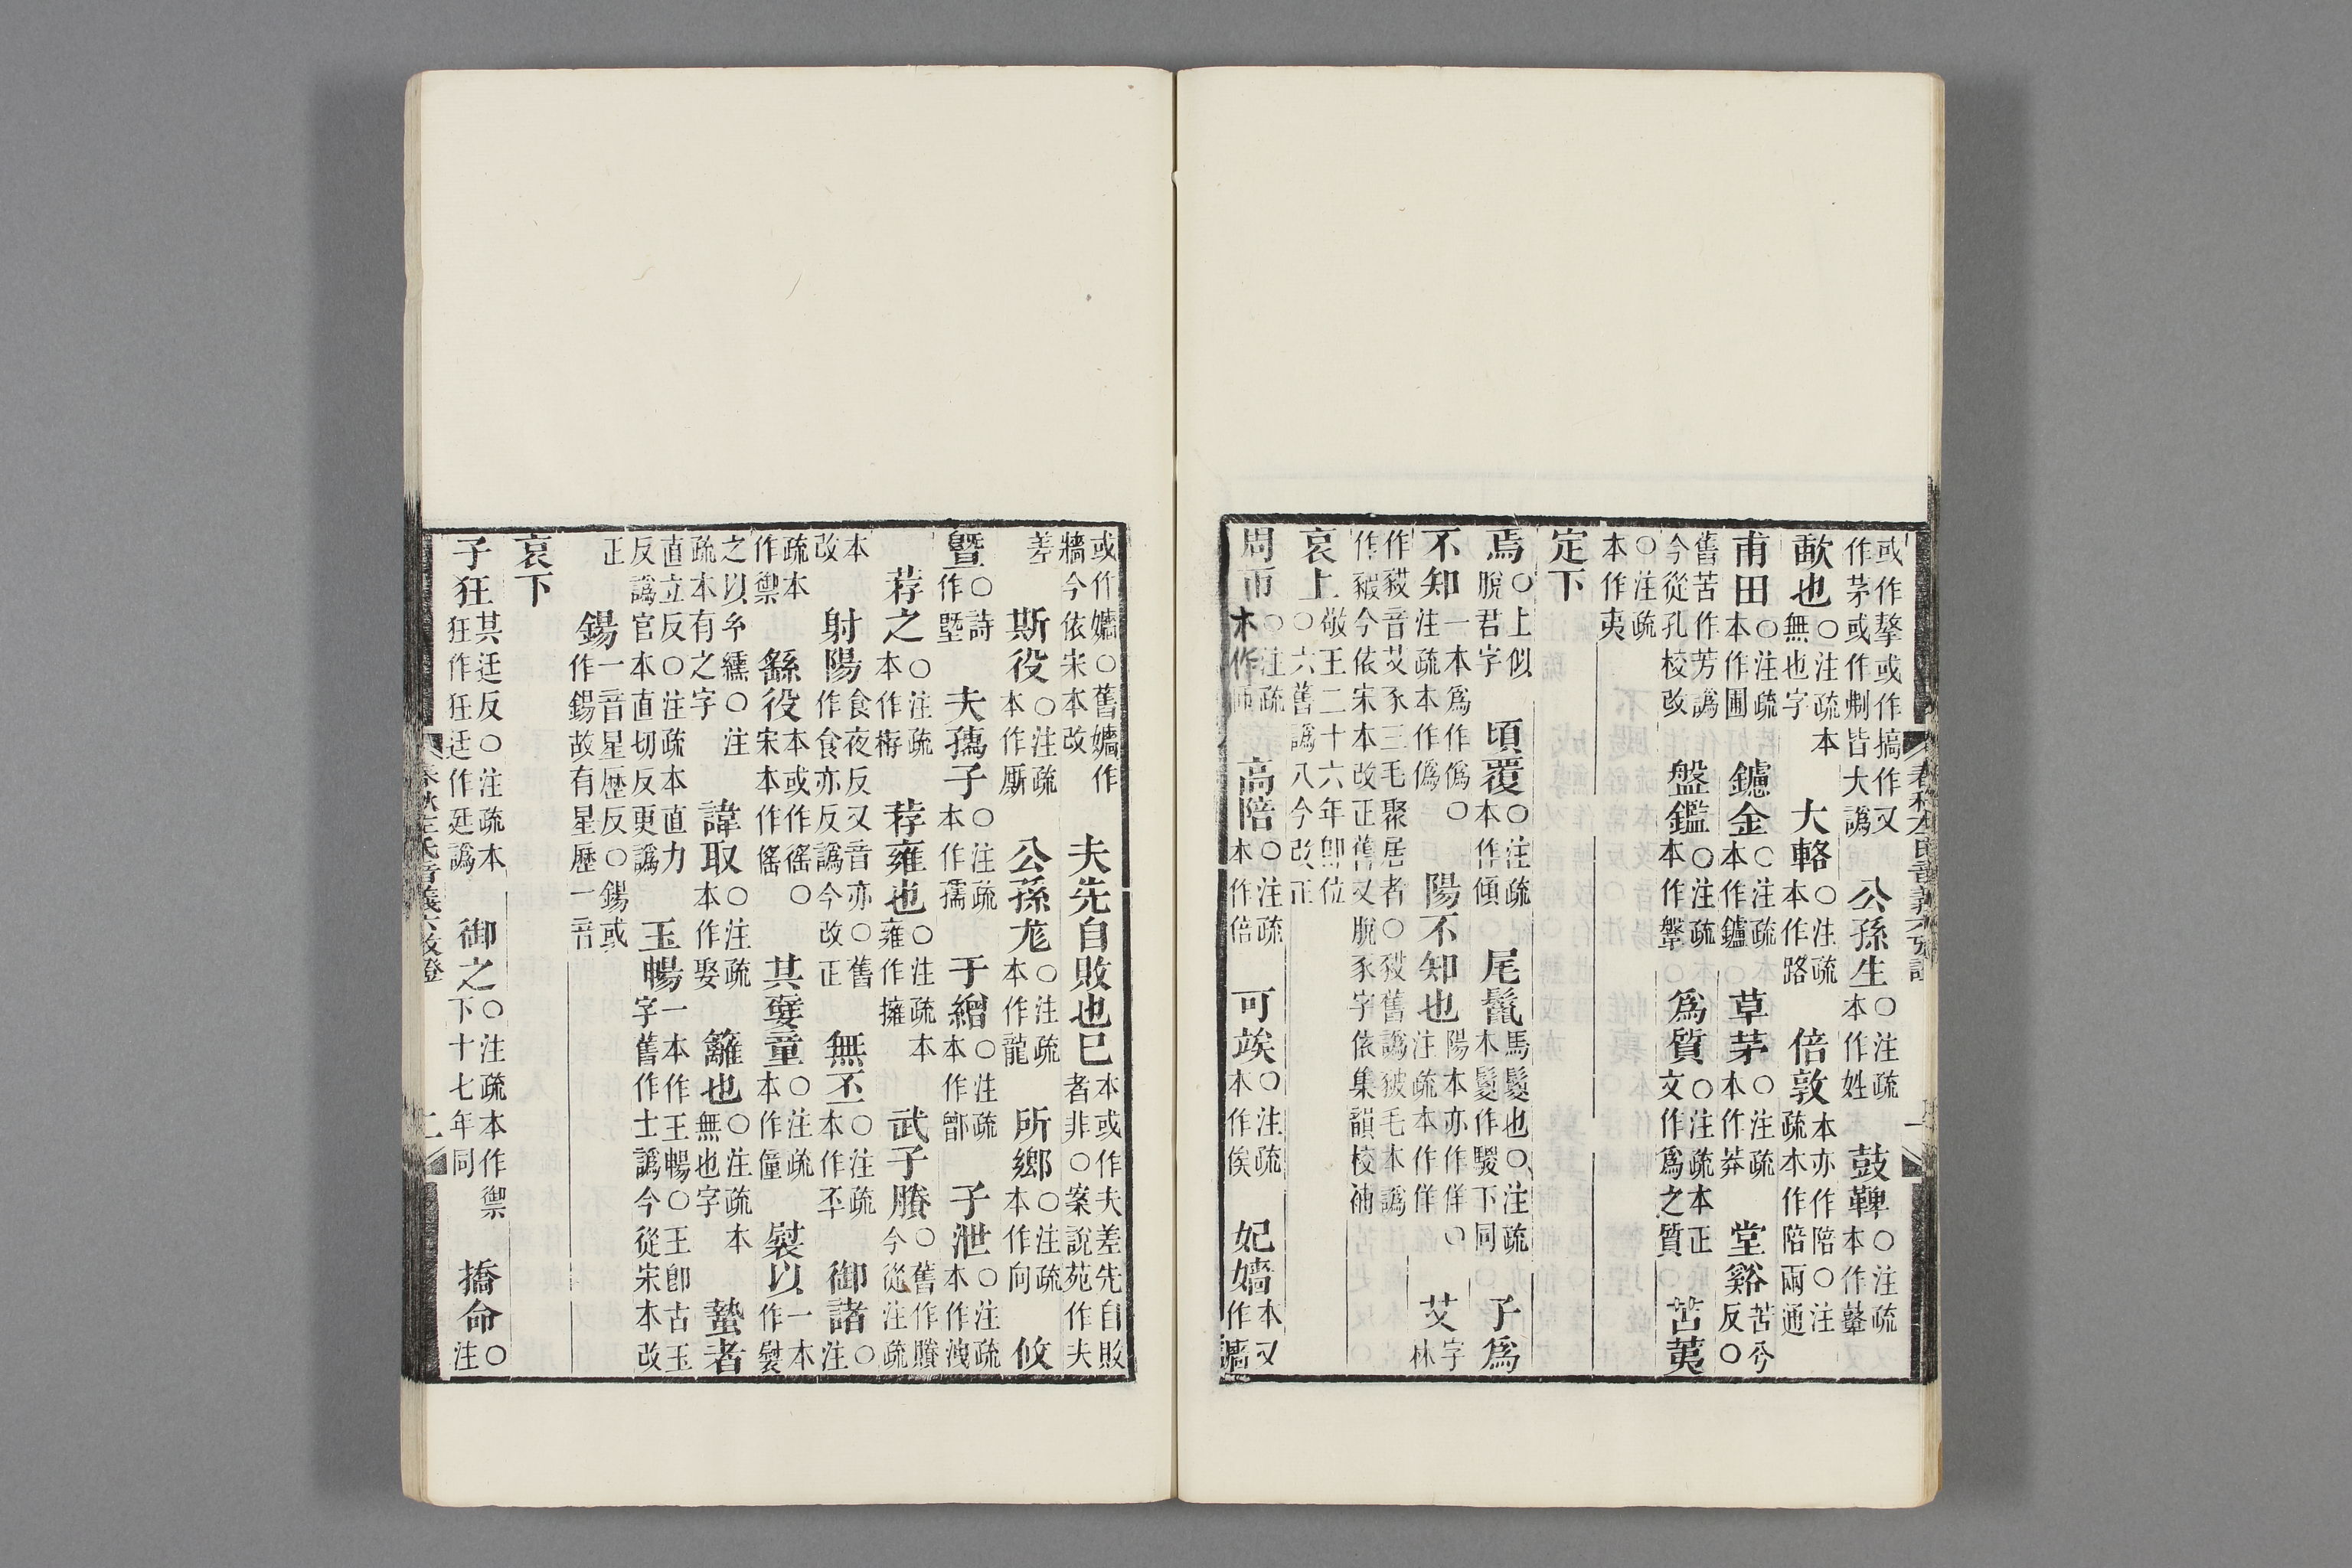 或作搫或作搞作又作茅或作剬皆大譌 公孫生○注疏本作姓 鼓鞞○注疏本作鼙
歃也○注疏本無也字 大輅○注疏本作路 倍敦本亦作陪○注疏本作陪兩通
甫田○注疏本作圃 鑢金○注疏本作鑪 草茅○注疏本作莽 堂谿苦兮反○
舊苦作芳譌今從孔校改 盤鑑○注疏本作鞶 爲質○注疏本正文作爲之質 苦荑
○注疏本作夷
定下
焉○上似脫君字 頃覆○注疏本作傾 尾鬣馬鬉也○注疏本鬉作騣下同 子爲
不知一本爲作僞○注疏本作僞 陽不知也陽本亦作佯○注疏本作佯 艾字林
作豛音艾豕三毛聚居者○豛舊譌豥毛本譌作豭今依宋本改正舊又脫豕字依集韻校補
哀上敬王二十六年卽位○六舊譌八今改正
周帀○注疏本作匝 高陪○注疏本作倍 可竢○注疏本作俟 妃嬙本又作廧
或作嬙○舊嬙作牆今依宋本改 夫先自敗也巳本或作夫差先自敗者非○案說苑作夫
差 斯役○注疏本作厮 公孫尨○注疏本作龍 所鄉○注疏本作向 攸
曁○詩作墍 夫孺子○注疏本作孺 于繒○注疏本作鄫 子泄○注疏本作洩
荐之○注疏本作栫 荐雍也○注疏本雍作擁 武子賸○舊作賸今從注疏
本改 射陽食夜反又音亦○舊作食亦反譌今改正 無丕○注疏本作丕 御諸○注
疏本作禦 繇役本或作徭○宋本作傜 其嬖童○注疏本作僮 裂以一本作裂
之以糸纁○注疏本有之字 諱取○注疏本作娶 籬也○注疏本無也字 蟄者
直立反○注疏本直力反譌官本直切反更譌 玉暢一本作王暢○王卽古玉字舊作士譌今從宋本改
正 鍚一音星歷反○鍚或作錫故有星歷一音
哀下
子狂其迋反○注疏本狂作狂迋作廷譌 御之○注疏本作禦下十七年同 撟命○注